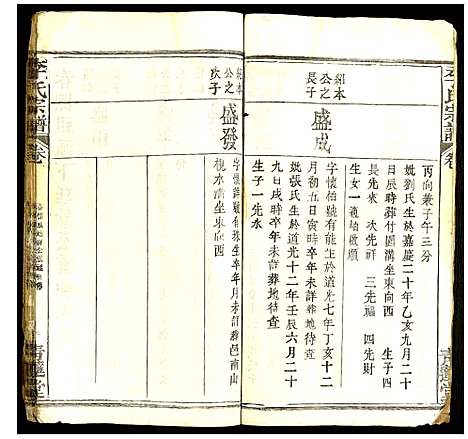 李氏宗譜
卷
丙向兼子午三分
妣劉氏生於嘉慶二十年乙亥九月二十
日辰時葬竹園溝坐東向西 生子四
長先來 次先祥 三先福 四先財
生女一適
紹本
公之
長子
盛成
字懷伯號有能生於道光七年丁亥十二
月初五日寅時卒年未詳葬地待查
妣張氏生於道光十二年壬辰六月二十
九日戌時卒年未詳葬地待查
生子一先永
紹本
公之
次子
盛發
字懷 號有珠生卒年月未詳葬邑南山
視水南坐東向西
李氏宗譜
卷
青蓮堂